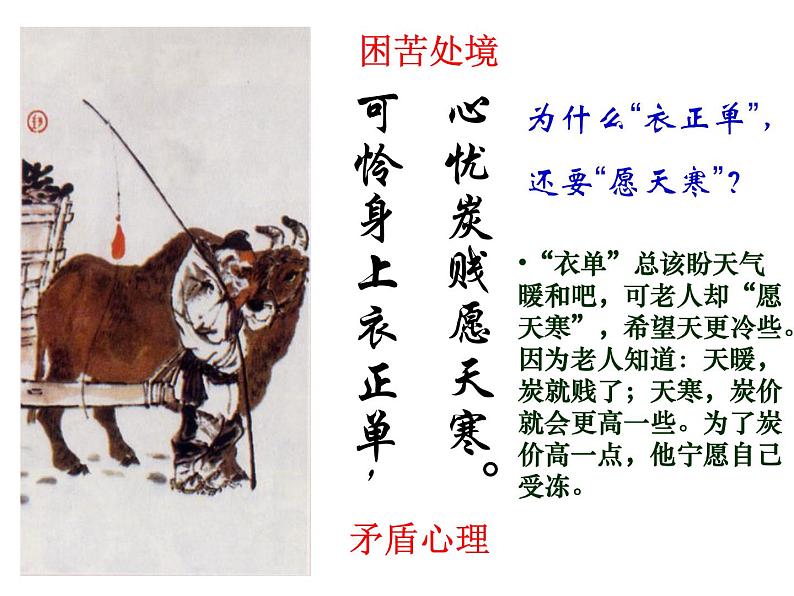 困苦处境
可怜身上衣正单，
心忧炭贱愿天寒。
矛盾心理
为什么“衣正单”，
还要“愿天寒”？
•“衣单”总该盼天气
暖和吧，可老人却“愿
天寒”，希望天更冷些。
因为老人知道：天暖，
炭就贱了；天寒，炭价
就会更高一些。为了炭
价高一点，他宁愿自己
受冻。